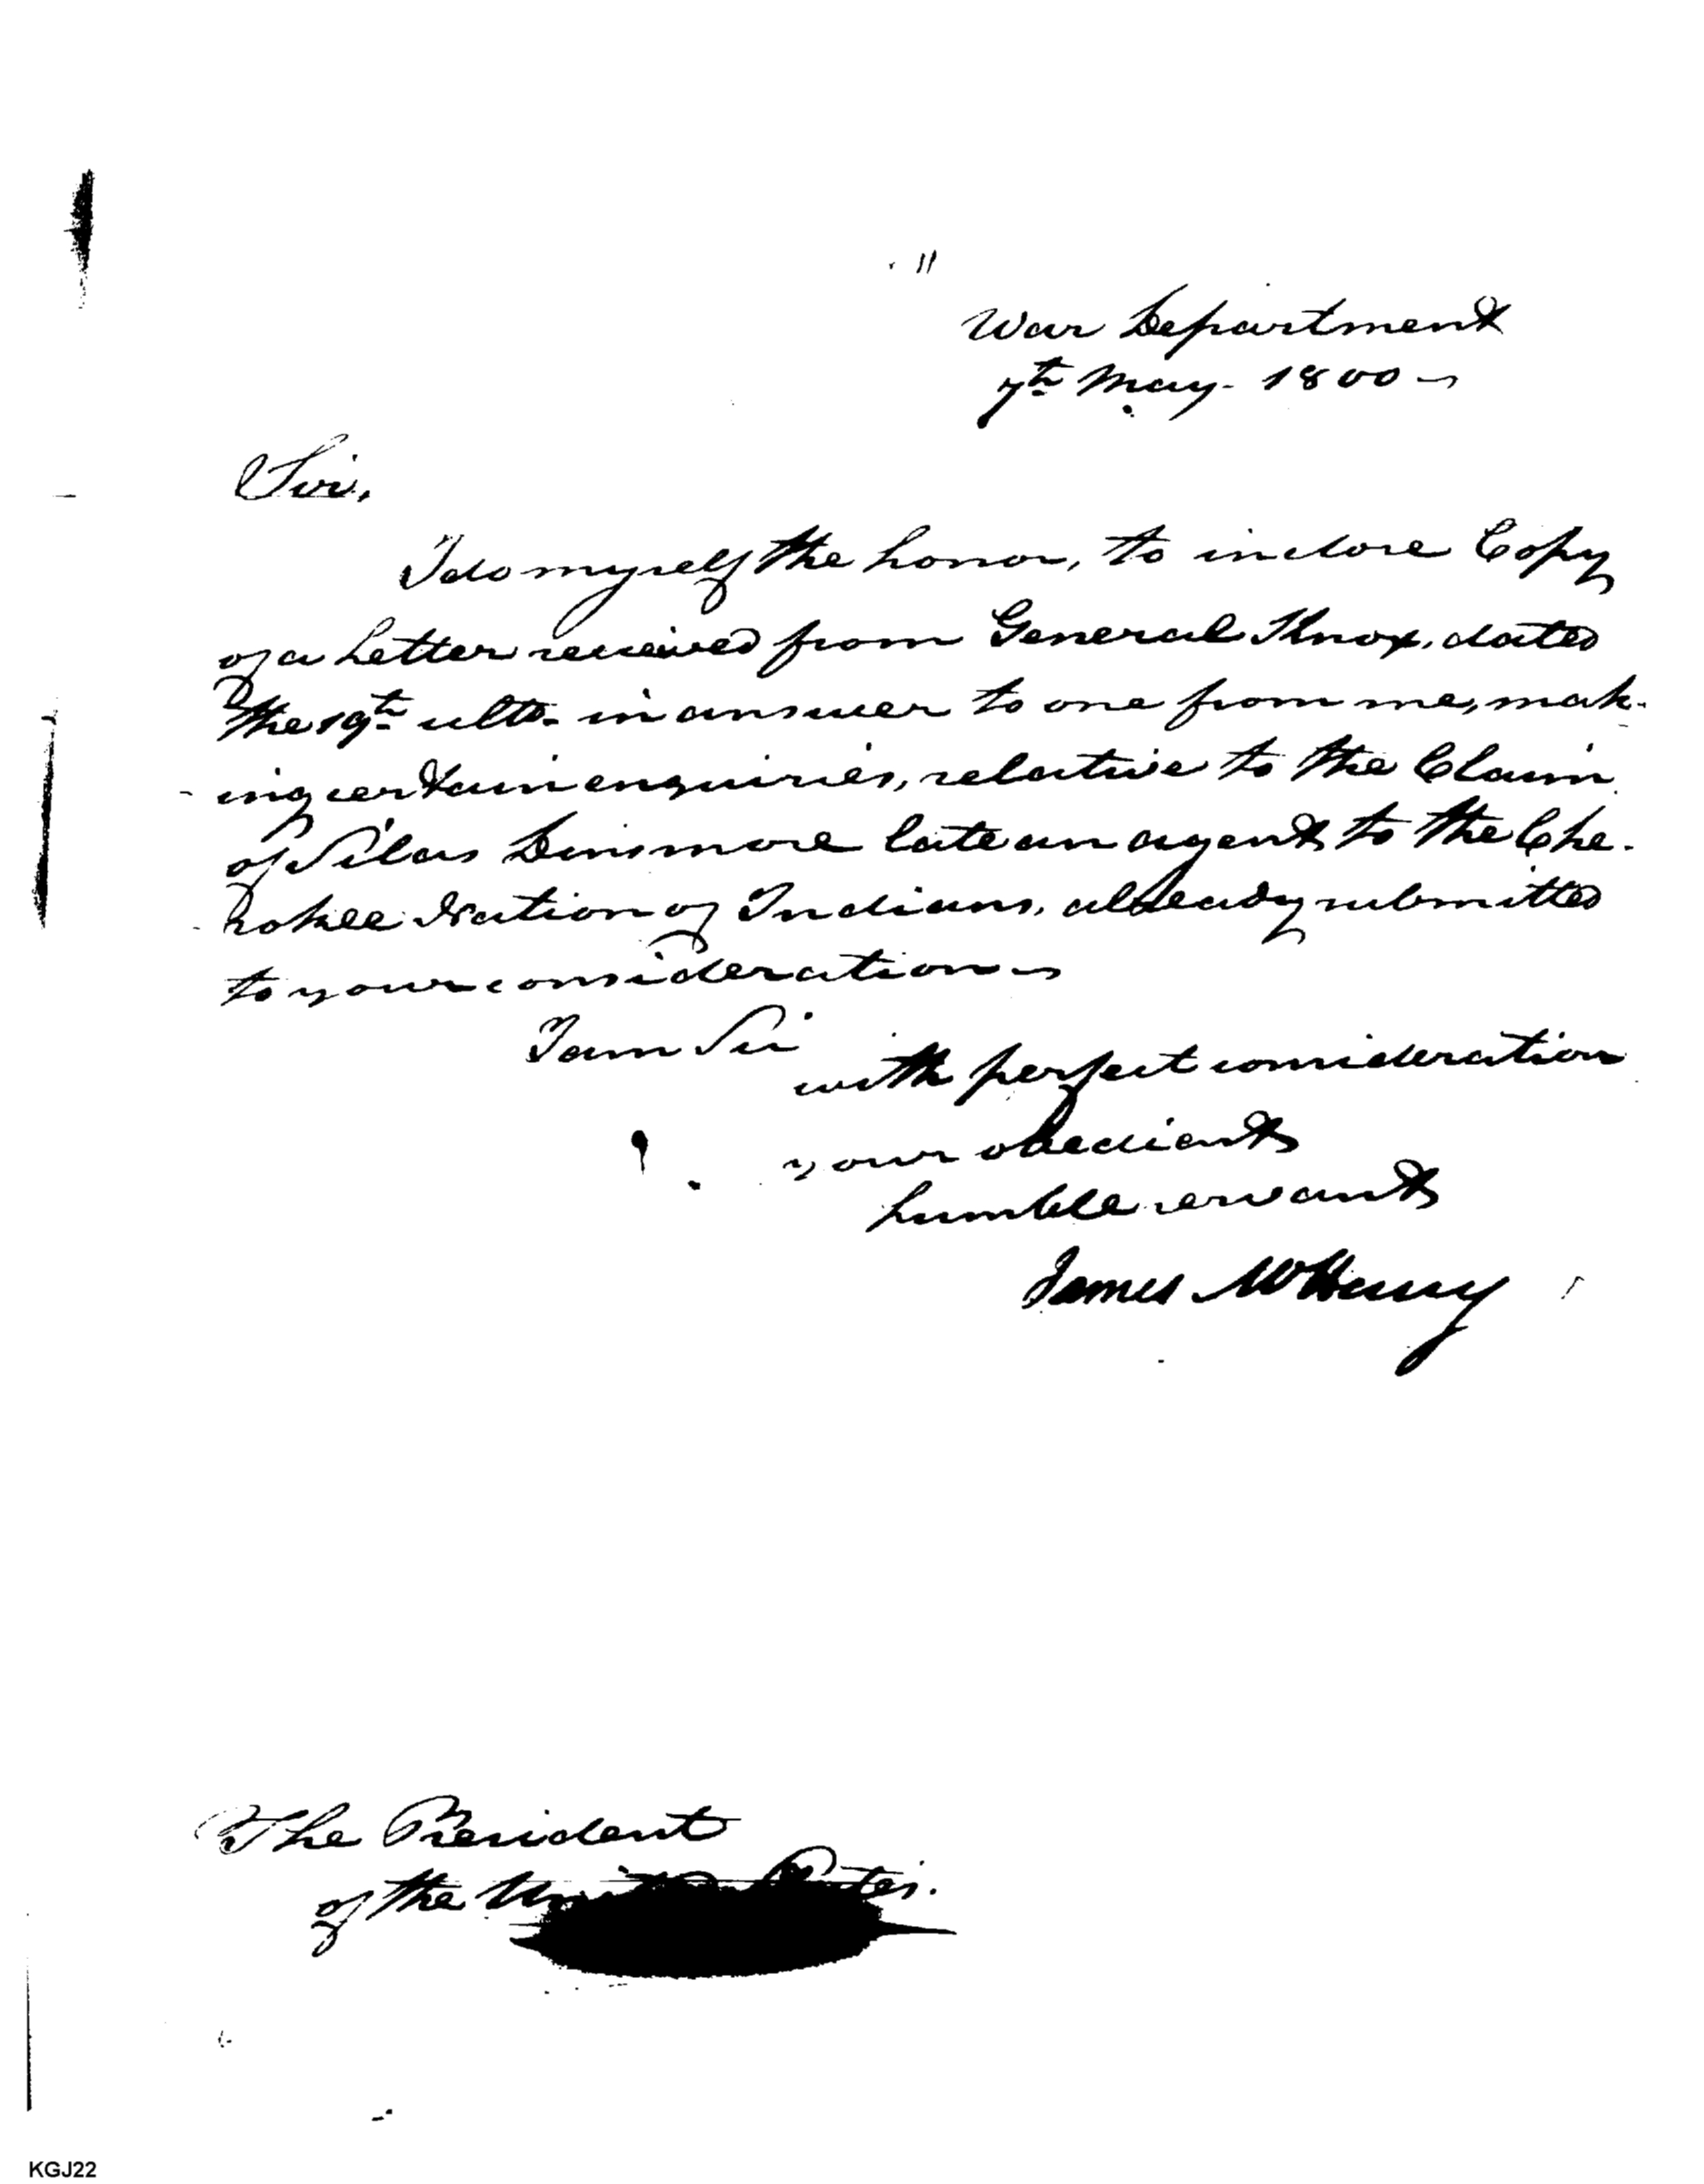 War Department
7th May - 1800 -
Sir,
I do myself the honor, to inclose Copy
of a Letter received from General Knox, dated
the 19th ulto. in answer to one from me, mak-
ing certain enquiries, relative to the Claim
of Silas Dinsmore late an agent to the Che-
rokee Nation of Indians, already submitted
to your consideration -
I am Sir
with perfect consideration
your obedient
humble servant
James McHenry
The President
of the United States.
KGJ22